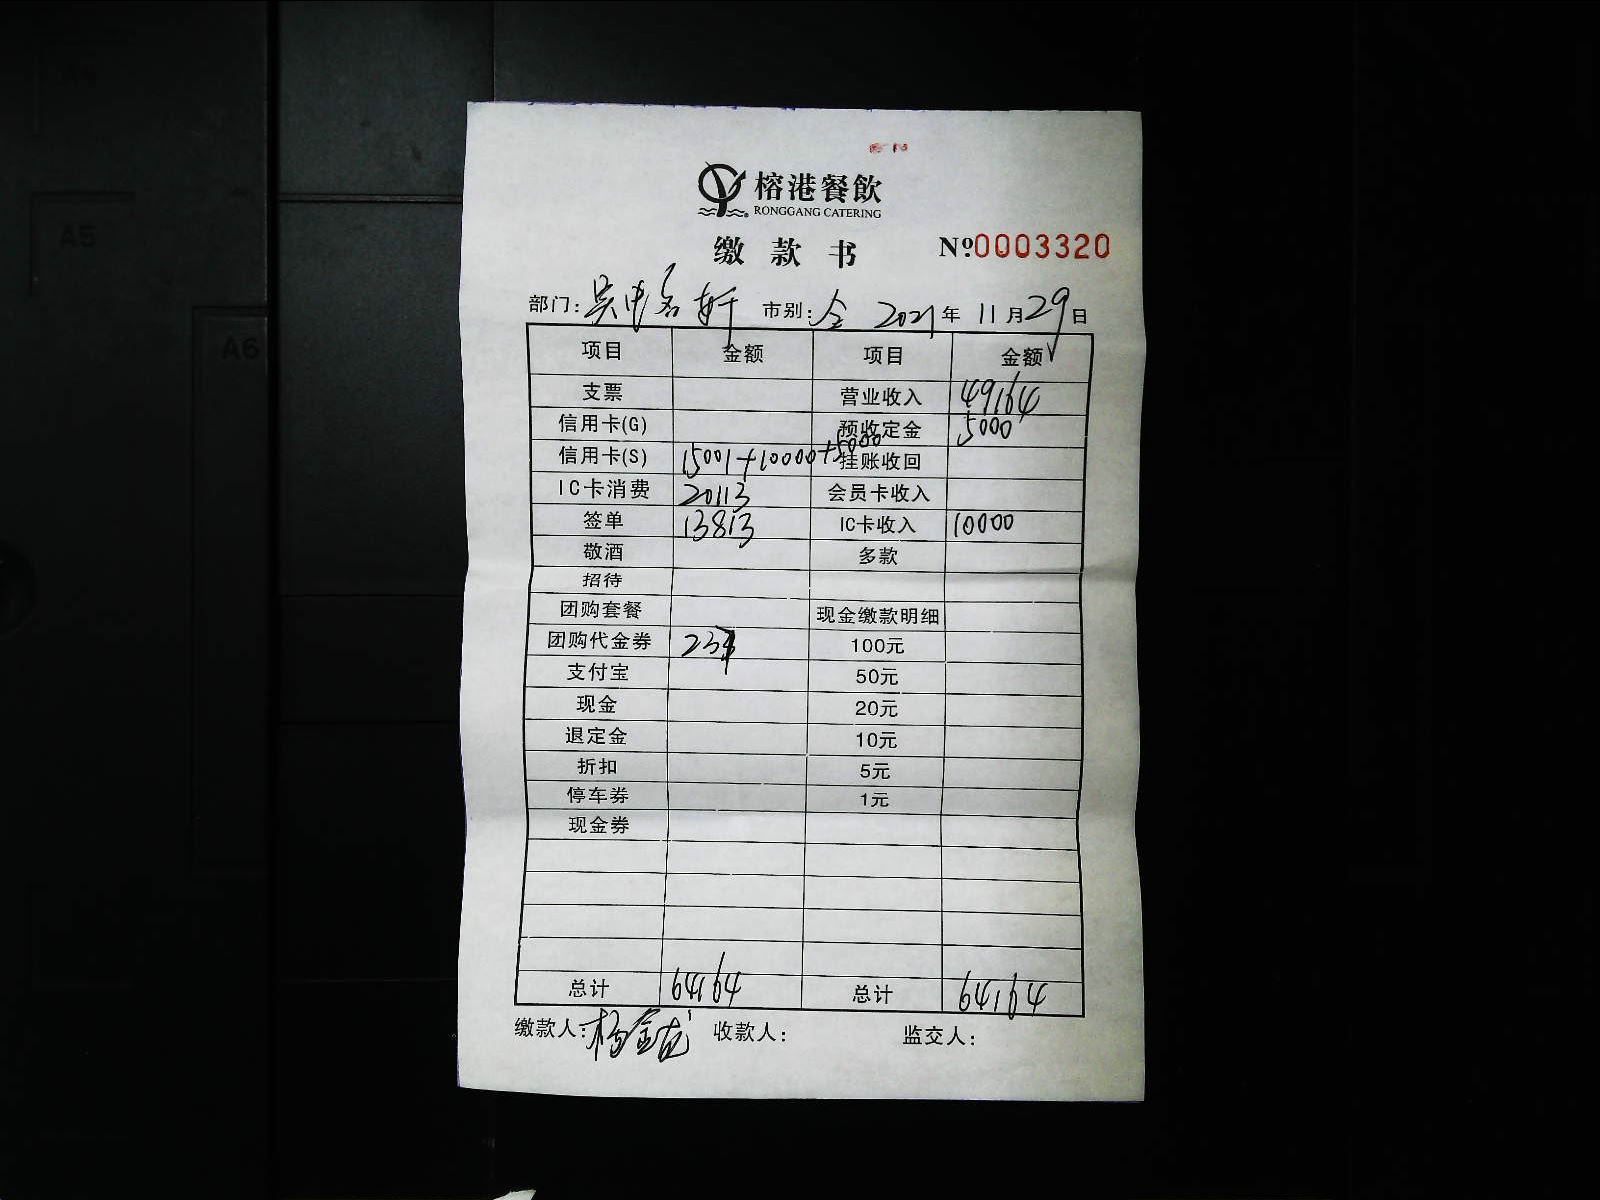 榕港餐飲
RONGGANG CATERING
缴款书 Nº:0003320
部门:吴中名轩 市别:全 2021年11月29日
项目 金额 项目 金额
支票 营业收入 49164
信用卡(G) 预收定金 5000
信用卡(S) 15001+10000+5000 挂账收回
IC卡消费 20113 会员卡收入
签单 13813 IC卡收入 10000
敬酒 多款
招待
团购套餐 现金缴款明细
团购代金券 237 100元
支付宝 50元
现金 20元
退定金 10元
折扣 5元
停车券 1元
现金券
总计 64164 总计 64164
缴款人:杨金龙 收款人: 监交人:
A5
A6